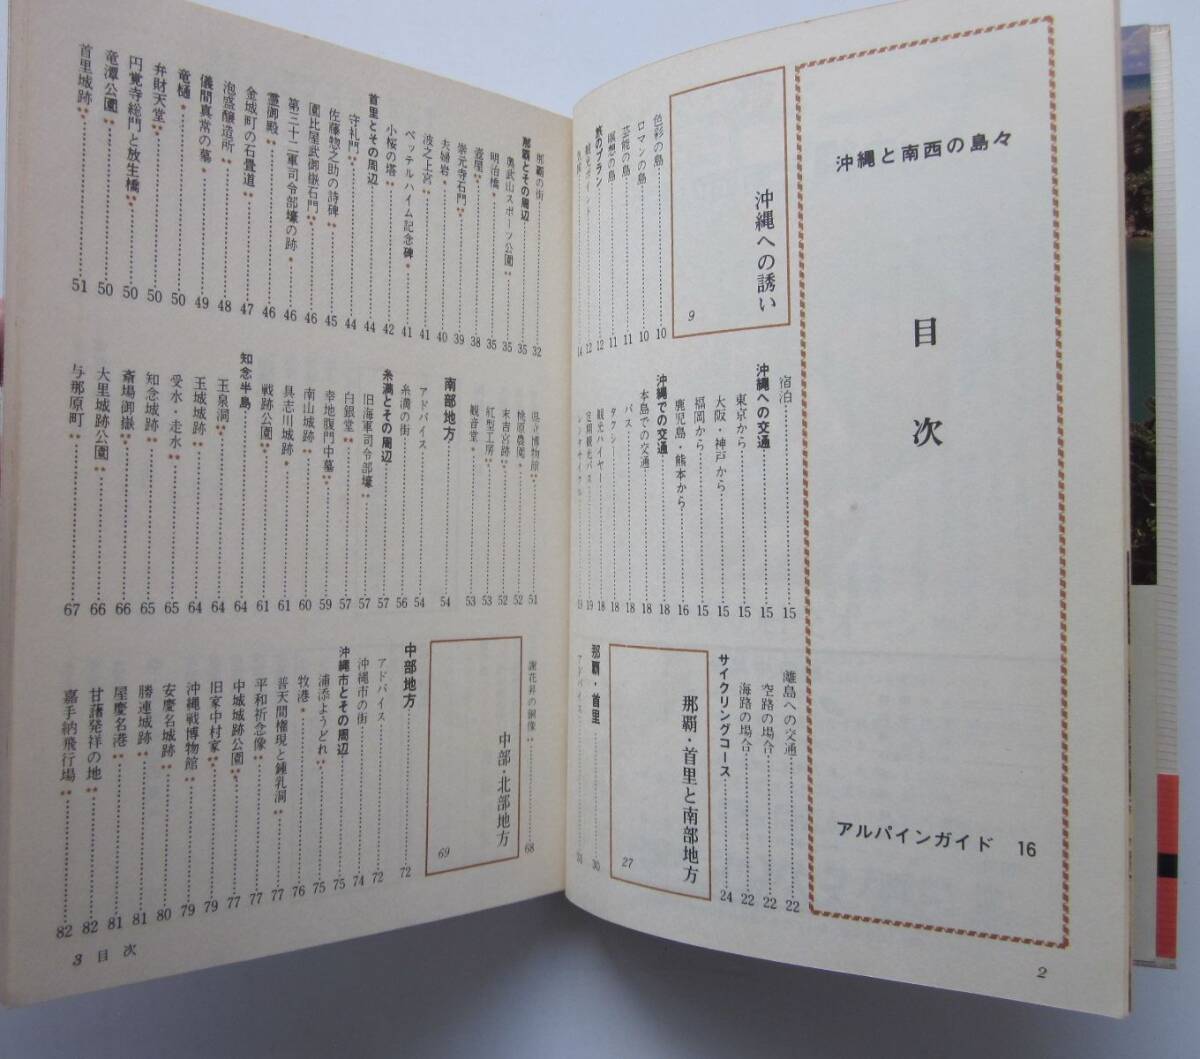 沖縄と南西の島々
目次
アルパインガイド 16
沖縄への誘い 9
色彩の島 10
ロマンの島 10
芸能の島 11
瞑想の島 11
旅のプラン 12
観光ポイント 12
14
宿泊 15
沖縄への交通 15
東京から 15
大阪・神戸から 15
福岡から 15
鹿児島・熊本から 16
沖縄での交通 18
本島での交通 18
バス 18
タクシー 18
観光ハイヤー 18
定期観光バス 19
レンタサイクル 19
離島への交通 22
空路の場合 22
海路の場合 22
サイクリングコース 24
那覇・首里と南部地方 27
那覇・首里 30
アドバイス 30
2
那覇の街 32
那覇とその周辺 35
奥武山スポーツ公園 35
明治橋 35
壺屋 38
崇元寺石門 39
夫婦岩 40
波之上宮 41
ベッテルハイム記念碑 41
小桜の塔 42
首里とその周辺 44
守礼門 44
佐藤惣之助の詩碑 45
園比屋武御嶽石門 46
第三十二軍司令部壕の跡 46
霊御殿 46
金城町の石畳道 47
泡盛醸造所 48
儀間真常の墓 49
竜樋 50
弁財天堂 50
円覚寺総門と放生橋 50
竜潭公園 50
首里城跡 51
県立博物館 51
桃原農園 52
末吉宮跡 52
紅型工房 53
観音堂 53
南部地方 54
アドバイス 54
糸満の街 56
糸満とその周辺 57
旧海軍司令部壕 57
白銀堂 57
幸地腹門中墓 59
南山城跡 60
具志川城跡 61
戦跡公園 61
知念半島 64
玉泉洞 64
玉城城跡 64
受水・走水 65
知念城跡 65
斎場御嶽 66
大里城跡公園 66
与那原町 67
謝花昇の銅像 68
中部・北部地方 69
中部地方 72
アドバイス 72
沖縄市の街 74
沖縄市とその周辺 75
浦添ようどれ 75
牧港 76
普天間権現と鍾乳洞 77
平和祈念像 77
中城城跡公園 77
旧家中村家 79
沖縄戦博物館 79
安慶名城跡 80
勝連城跡 81
屋慶名港 81
甘藷発祥の地 82
嘉手納飛行場 82
3 目次